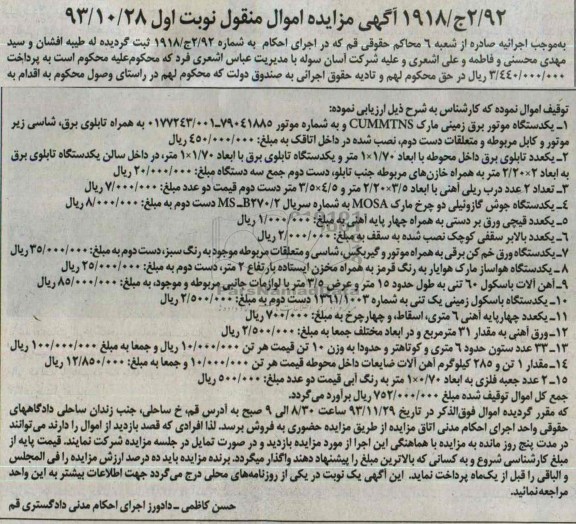 ۲/۹۲ج/۱۹۱۸ آگهی مزایده اموال منقول نوبت اول ۹۳/۱۰/۲۸
بموجب اجرائیه صادره از شعبه ۶ محاکم حقوقی قم که در اجرای احکام به شماره ۲/۹۲ج/۱۹۱۸ ثبت گردیده له طیبه افشان و سید
مهدی محسنی و فاطمه و علی اشعری و علیه شرکت آسان سوله با مدیریت عباس اشعری فرد که محکوم‌علیه محکوم است به پرداخت
۳/۴۴۰/۰۰۰/۰۰۰ ریال در حق محکوم لهم و تادیه حقوق اجرائی به صندوق دولت که محکوم لهم در راستای وصول محکوم به اقدام به
توقیف اموال نموده که کارشناس به شرح ذیل ارزیابی نموده:
۱ـ یکدستگاه موتور برق زمینی مارک CUMMTNS و به شماره موتور ۷۹۰۴۱۸۸۵ـ۰۱۷۷۲۴۳/۰۰۱ به همراه تابلوی برق، شاسی زیر
موتور و کابل مربوطه و متعلقات دست دوم، نصب شده در داخل اتاقک به مبلغ: ۴۵۰/۰۰۰/۰۰۰ ریال
۲ـ یکعدد تابلوی برق داخل محوطه با ابعاد ۱/۷۰×۱ متر و یکدستگاه تابلوی برق با ابعاد ۱/۷۰×۱ متر، در داخل سالن یکدستگاه تابلوی برق
به ابعاد ۲×۲/۲۰ متر به همراه خازن‌های مربوطه جنب تابلو، دست دوم جمع سه دستگاه مبلغ: ۲۰/۰۰۰/۰۰۰ ریال
۳ـ تعداد ۲ عدد درب ریلی آهنی با ابعاد ۳/۵×۲/۲۰ متر و ۳/۵×۴/۵ متر دست دوم قیمت دو عدد مبلغ: ۷/۰۰۰/۰۰۰ ریال
۴ـ یکدستگاه جوش گازوئیلی دو چرخ مارک MOSA به شماره سریال MS_B۲۷۰/۲ دست دوم به مبلغ: ۸/۰۰۰/۰۰۰ ریال
۵ـ یکعدد قیچی ورق بر دستی به همراه چهار پایه آهنی به مبلغ: ۱/۰۰۰/۰۰۰ ریال
۶ـ یکعدد بالابر سقفی کوچک نصب شده به سقف به مبلغ: ۲/۰۰۰/۰۰۰ ریال
۷ـ یکدستگاه ورق خم کن برقی به همراه موتور و گیربکس، شاسی و متعلقات مربوطه موجود به رنگ سبز، دست دوم به مبلغ: ۳۵/۰۰۰/۰۰۰ ریال
۸ـ یکدستگاه هواساز مارک هوایار به رنگ قرمز به همراه مخزن ایستاده بارتفاع ۲ متر، دست دوم به مبلغ: ۲۵/۰۰۰/۰۰۰ ریال
۹ـ آهن آلات باسکول ۶۰ تنی به طول حدود ۱۵ متر و عرض ۳/۵ متر با لوازمات جانبی مربوطه و موجود، به مبلغ: ۸۵/۰۰۰/۰۰۰ ریال
۱۰ـ یکدستگاه باسکول زمینی یک تنی به شماره ۱۳۶۱/۱۰۰۳ دست دوم به مبلغ: ۲/۵۰۰/۰۰۰ ریال
۱۱ـ یکعدد چهارپایه آهنی ۶ متری، اسقاط، و چهارچرخ به مبلغ: ۷۰۰/۰۰۰ ریال
۱۲ـ ورق آهنی به مقدار ۳۱ مترمربع و در ابعاد مختلف جمعا به مبلغ: ۲/۵۰۰/۰۰۰ ریال
۱۳ـ ۳۳ عدد ستون حدود ۶ متری و کوتاهتر و حدودا به وزن ۱۰ تن قیمت هر تن ۱۰/۰۰۰/۰۰۰ ریال و جمعا به مبلغ ۱۰۰/۰۰۰/۰۰۰ ریال
۱۴ـ مقدار ۱ تن و ۲۸۵ کیلوگرم آهن آلات ضایعات داخل محوطه قیمت هر تن ۱۰/۰۰۰/۰۰۰ و جمعا به مبلغ: ۱۲/۸۵۰/۰۰۰ ریال
۱۵ـ ۲ عدد جعبه فلزی به ابعاد ۰/۷۰×۱ متر به رنگ آبی قیمت دو عدد مبلغ: ۵۰۰/۰۰۰ ریال
جمع کل اموال توقیف شده مبلغ ۷۵۲/۰۰۰/۰۰۰ ریال برآورد می‌گردد.
که مقرر گردیده اموال فوق‌الذکر در تاریخ ۹۳/۱۱/۲۹ ساعت ۸/۳۰ الی ۹ صبح به آدرس قم، خ ساحلی، جنب زندان ساحلی دادگاههای
حقوقی واحد اجرای احکام مدنی اتاق مزایده از طریق مزایده حضوری به فروش برسد. لذا افرادی که قصد بازدید از اموال را دارند می‌توانند
در مدت پنج روز مانده به مزایده با هماهنگی این اجرا از مورد مزایده بازدید و در صورت تمایل در جلسه مزایده شرکت نمایند. قیمت پایه از
مبلغ کارشناسی شروع و به کسانی که بالاترین مبلغ را پیشنهاد دهند واگذار میگردد. برنده مزایده باید ده درصد ارزش مزایده را فی المجلس
و الباقی را قبل از یک‌ماه پرداخت نماید. این آگهی یک نوبت در یکی از روزنامه‌های محلی درج می‌گردد جهت اطلاعات بیشتر به این واحد
مراجعه نمائید.
حسن کاظمی ـ دادورز اجرای احکام مدنی دادگستری قم